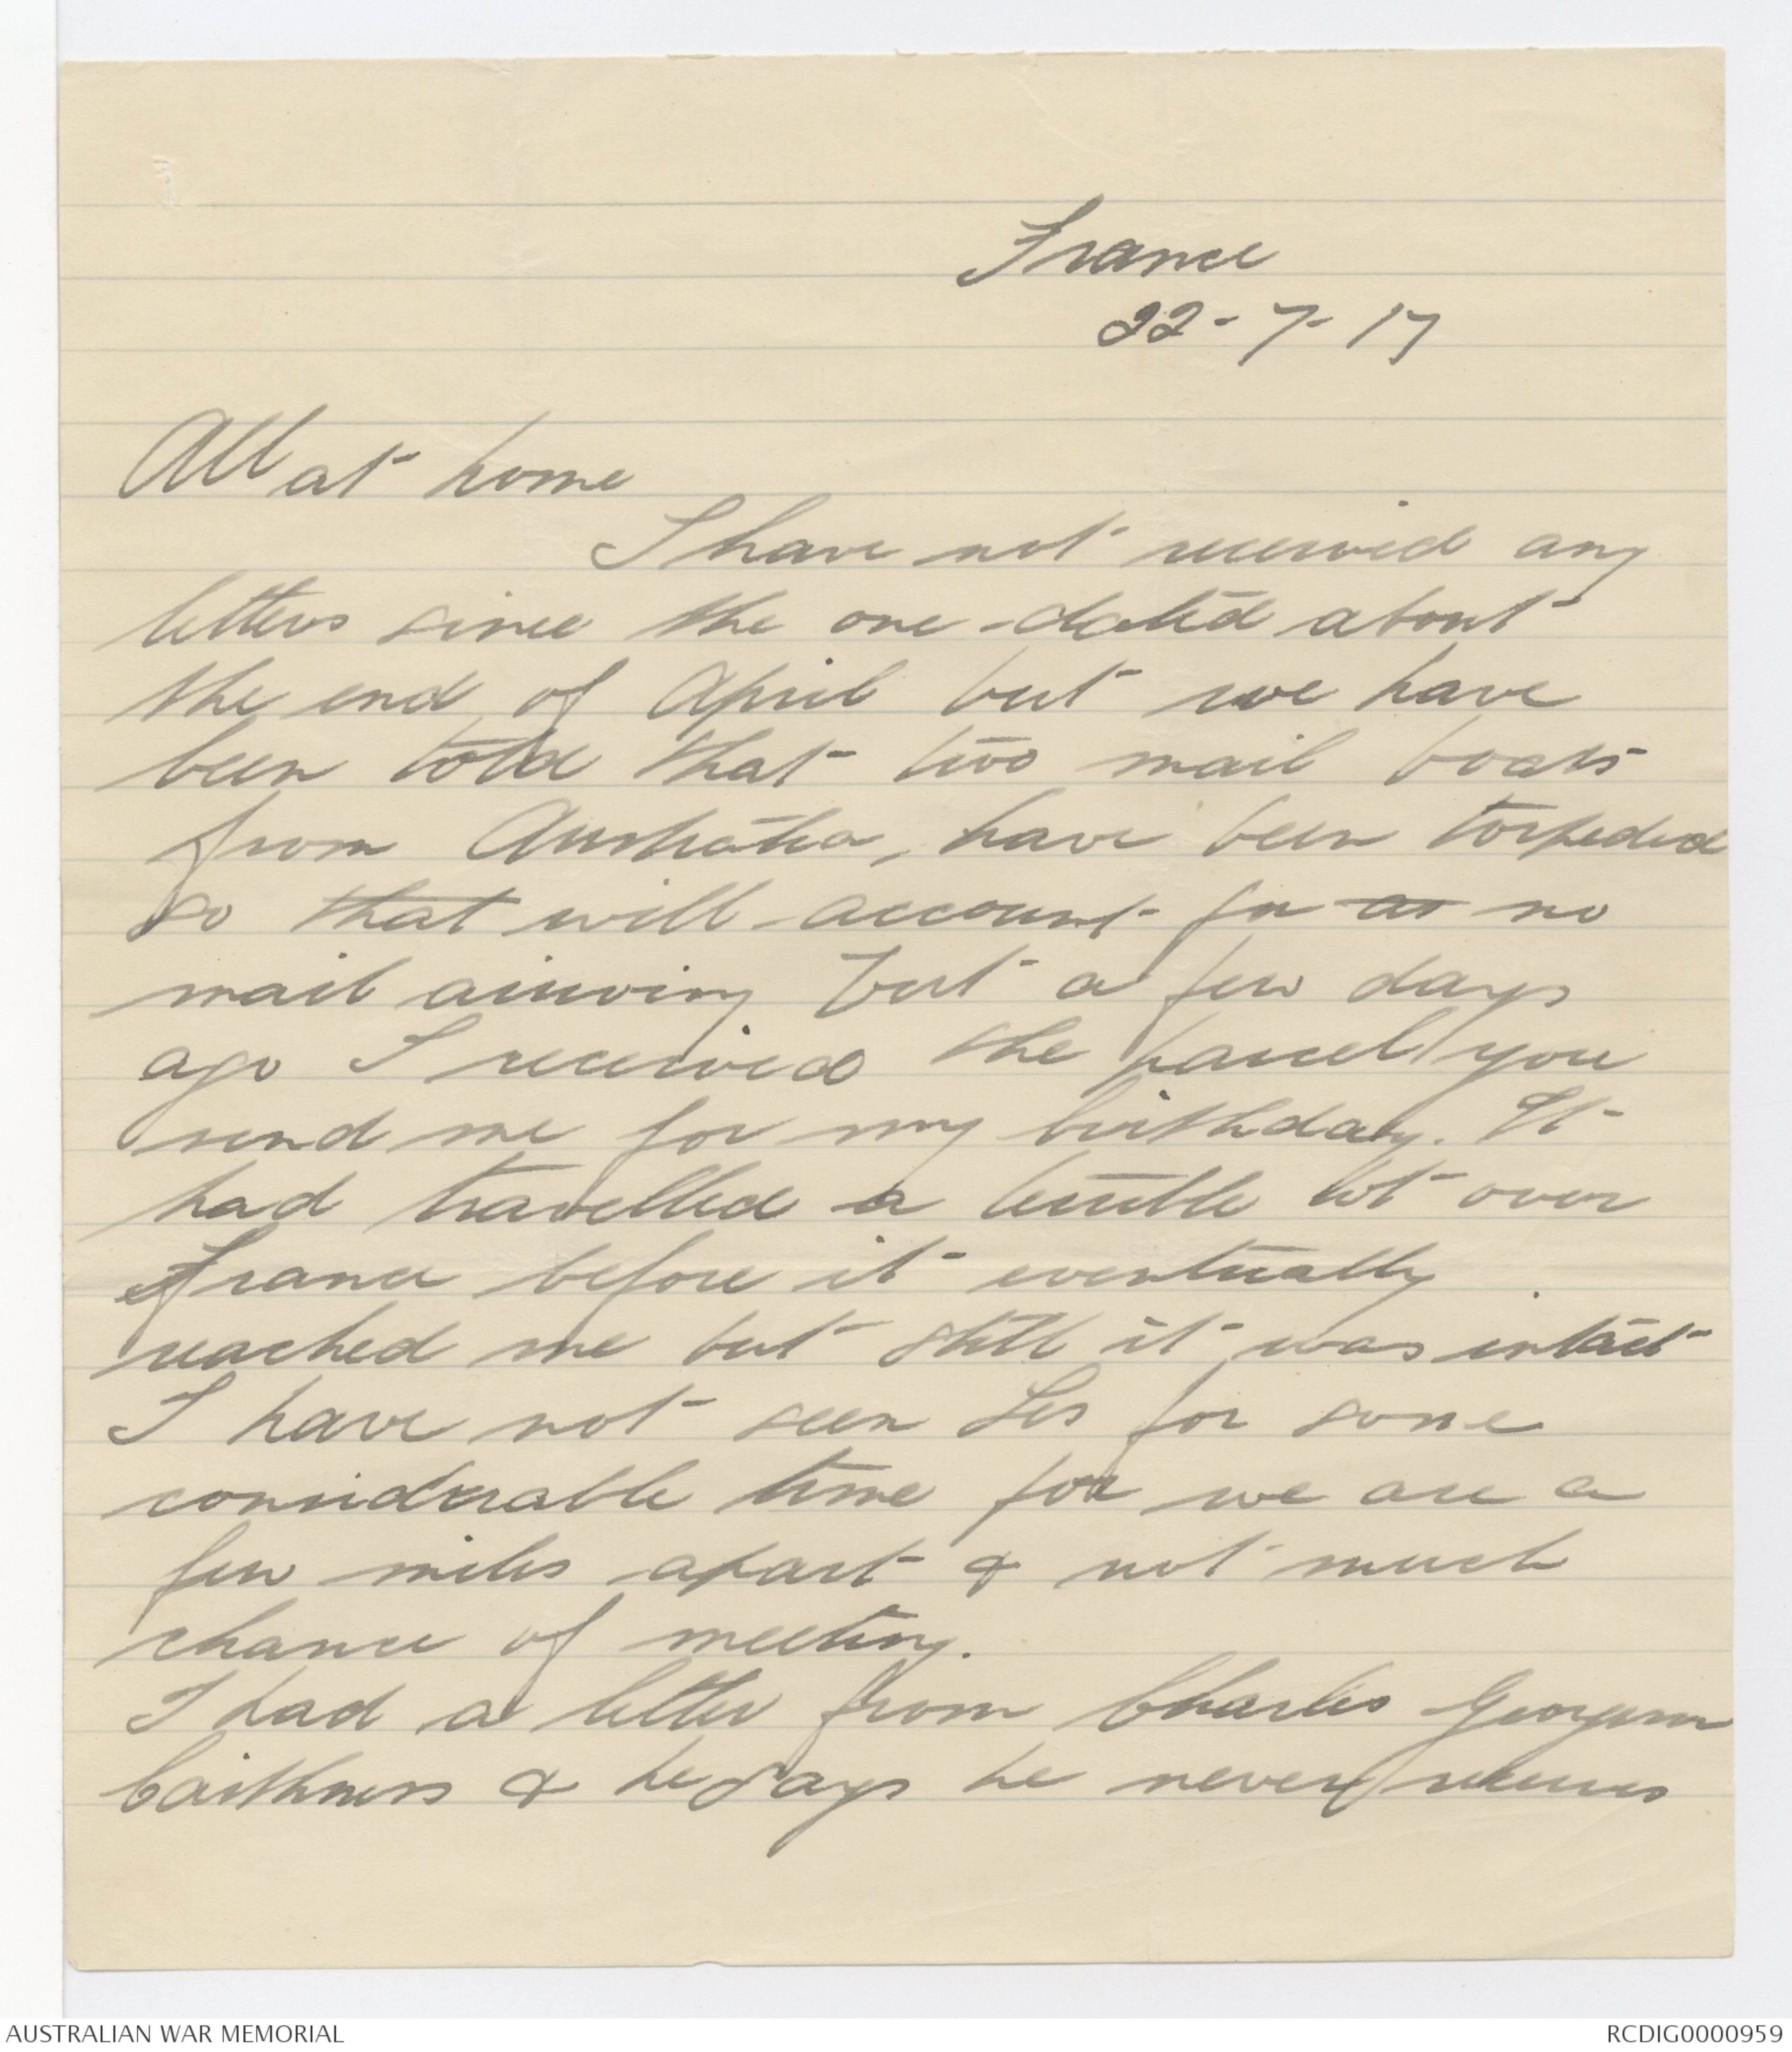 France
22-7-17
All at home
I have not received any
letters since the one dated about
the end of April but we have
been told that two mail boats
from Australia, have been torpedoed
so that will account for as no
mail arriving but a few days
ago I received the parcel you
send me for my birthday. It
had travelled a terrible lot over
France before it eventually
reached me but still it was intact
I have not seen Les for some
considerable time for we are a
few miles apart & not much
chance of meeting.
I had a letter from Charles
Caithness & he says he never receives
AUSTRALIAN WAR MEMORIAL
RCDIG0000959